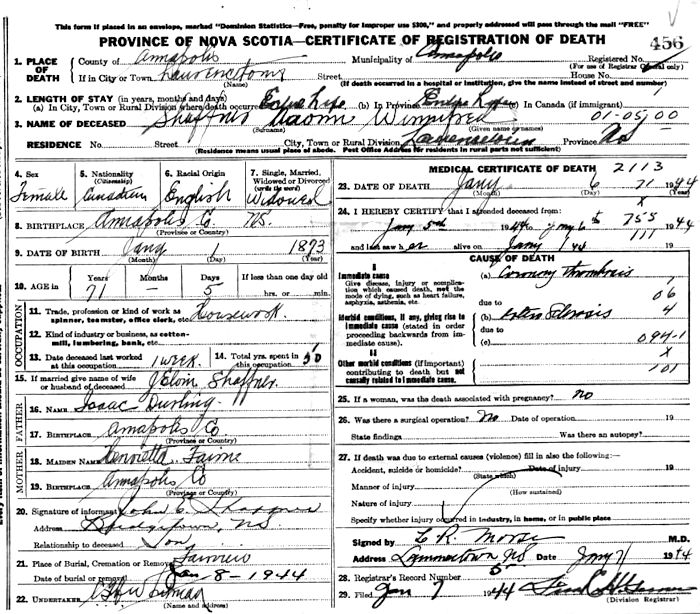 This form if placed in an envelope, marked "Dominion Statistics—Free, penalty for improper use $300," and properly addressed will pass through the mail "FREE"
PROVINCE OF NOVA SCOTIA—CERTIFICATE OF REGISTRATION OF DEATH
456
1. PLACE OF DEATH
County of Annapolis
Municipality of Annapolis
Registered No.
(For use of Registrar General only)
If in City or Town Lawrencetown
(Name)
Street
House No.
(If death occurred in a hospital or institution, give the name instead of street and number)
2. LENGTH OF STAY (in years, months and days)
(a) In City, Town or Rural Division where death occurred Entire Life (b) In Province Entire Life (c) In Canada (if immigrant)
3. NAME OF DECEASED Shaffner Naomi Winnifred 01-05,00
(Surname) (Given name or names)
RESIDENCE No. Street City, Town or Rural Division Lawrencetown Province NS
(Residence means usual place of abode. Post Office Address for residents in rural parts not sufficient)
4. Sex
Female
5. Nationality
(Citizenship)
Canadian
6. Racial Origin
English
7. Single, Married, Widowed or Divorced
(write the word)
Widowed
8. BIRTHPLACE Annapolis Co. NS.
(Province or Country)
9. DATE OF BIRTH Jany 1 1873
(Month) (Day) (Year)
10. AGE IN
Years 71
Months —
Days 5
If less than one day old
hrs. or min.
OCCUPATION
11. Trade, profession or kind of work as spinner, teamster, office clerk, etc. Housework
12. Kind of industry or business, as cotton-mill, lumbering, bank, etc.
13. Date deceased last worked at this occupation 1 week.
14. Total yrs. spent in this occupation 50
15. If married give name of wife or husband of deceased J Elom Shaffner
FATHER
16. NAME Isaac Durling
17. BIRTHPLACE Annapolis Co
(Province or Country)
MOTHER
18. MAIDEN NAME Henrietta
19. BIRTHPLACE Annapolis Co
(Province or Country)
20. Signature of informant John E. Shaffner
Address Bridgetown, NS.
Relationship to deceased Son
21. Place of Burial, Cremation or Removal Fairview
Date of burial or removal Jan 8 - 1944
22. UNDERTAKER
(Name and address)
MEDICAL CERTIFICATE OF DEATH 2113
23. DATE OF DEATH Jany 6 71 1944
(Month) (Day) (Year)
X
24. I HEREBY CERTIFY that I attended deceased from:
Jany 5th 1944 to Jny 6th 755 1944
and last saw her alive on Jany 1944 111
CAUSE OF DEATH
I
Immediate cause
Give disease, injury or complication which caused death, not the mode of dying, such as heart failure, asphyxia, asthenia, etc.
(a) Coronary thrombosis 1
due to 06
Morbid conditions, if any, giving rise to immediate cause (stated in order proceeding backwards from immediate cause).
(b) 4
due to
(c) 094-1
II
X
Other morbid conditions (if important) contributing to death but not causally related to immediate cause.
101
25. If a woman, was the death associated with pregnancy? no
26. Was there a surgical operation? No Date of operation 19
State findings Was there an autopsy?
27. If death was due to external causes (violence) fill in also the following:—
Accident, suicide or homicide? Date of injury 19
(State which)
Manner of injury
(How sustained)
Nature of injury
Specify whether injury occurred in industry, in home, or in public place
Signed by L R. Morse M.D.
Address Lawrencetown NS Date Jny 7 1944
28. Registrar's Record Number 5
29. Filed Jan 7 1944
(Division Registrar)